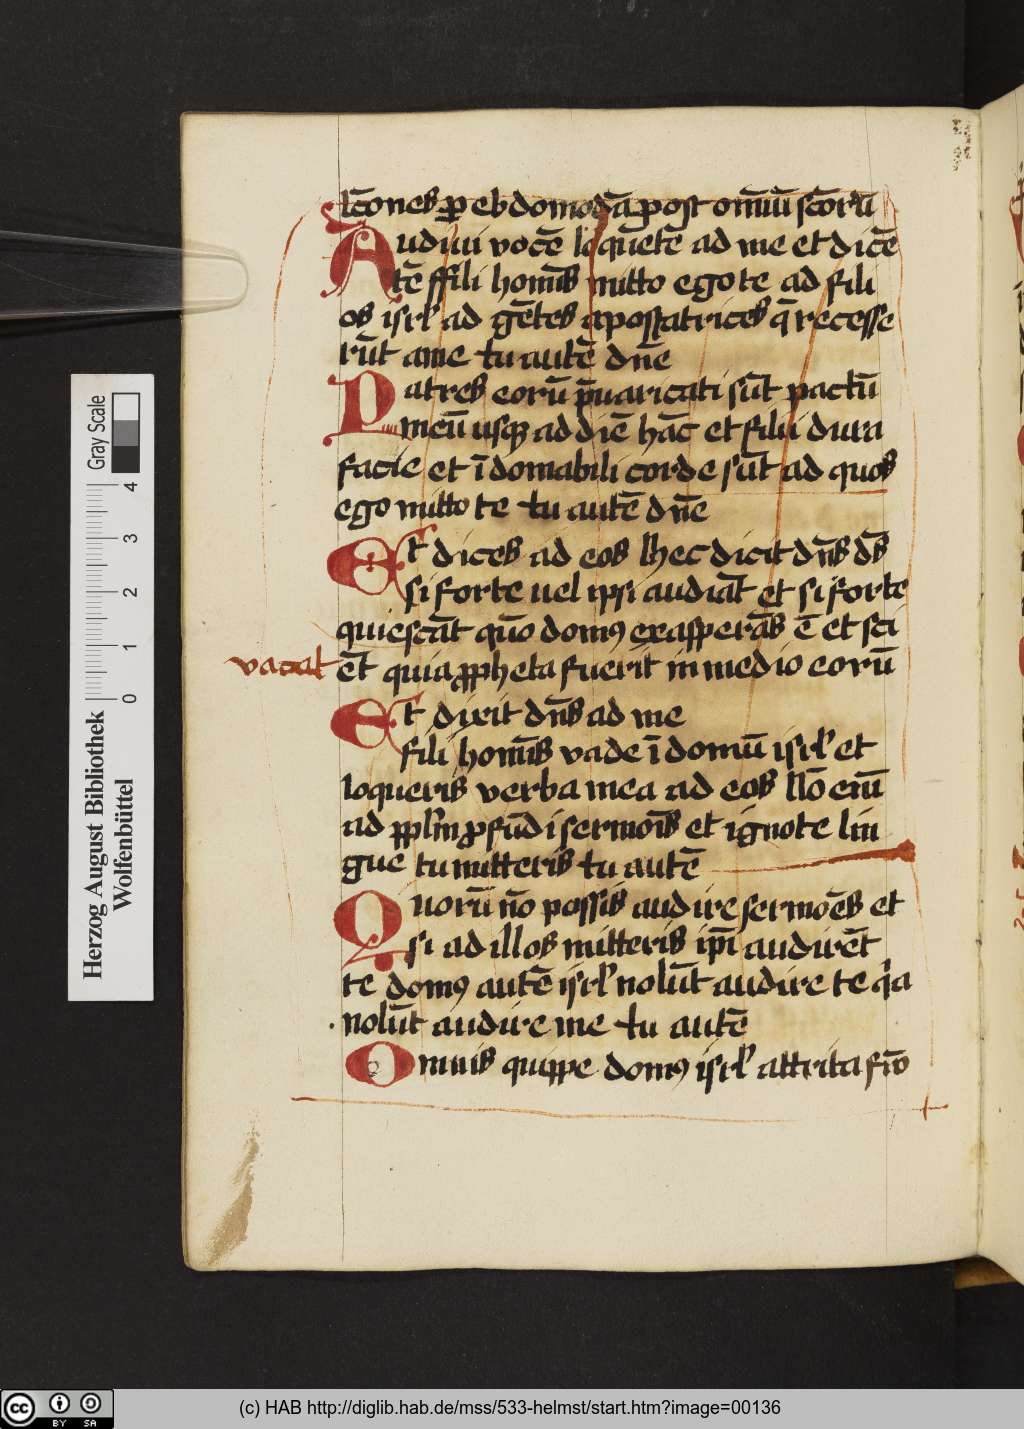 lc̄ones ꝑ ebdomodā post om̄iū sc̄orū
Audiui vocē loquētē ad me et dicē
tē ffili homīs mitto ego te ad fili
os isrl' ad gētes apostatrices q̄ recesse
rūt a me tu autē dn̄e
Patres eorū p̄uaricati sūt pactū
meū usqȝ ad diē hāc et filii dura
facie et īdomabili corde sūt ad quos
ego mitto te tu autē dn̄e
Et dices ad eos hec dicit dn̄s ds̄
si forte uel ipsi audiāt et si forte
quiescāt quō domꝰ exasperās ē et sci
vacat
ēt quia ꝓpheta fuerit in medio eorū
Et dixit dn̄s ad me
fili homīs vade ī domū isrl' et
loqueris verba mea ad eos nō enī
ad ppl'm ꝓfūdi sermoīs et ignote lin
gue tu mitteris tu autē
Quorū nō possis audire sermōes et
si ad illos mitteris ip̄i audirēt
te domꝰ autē isrl' nolūt audire te q̇a
nolūt audire me tu autē
Omnis quippe domꝰ isrl' attrita frō
Gray Scale
0 1 2 3 4
Herzog August Bibliothek
Wolfenbüttel
BY SA
(c) HAB http://diglib.hab.de/mss/533-helmst/start.htm?image=00136